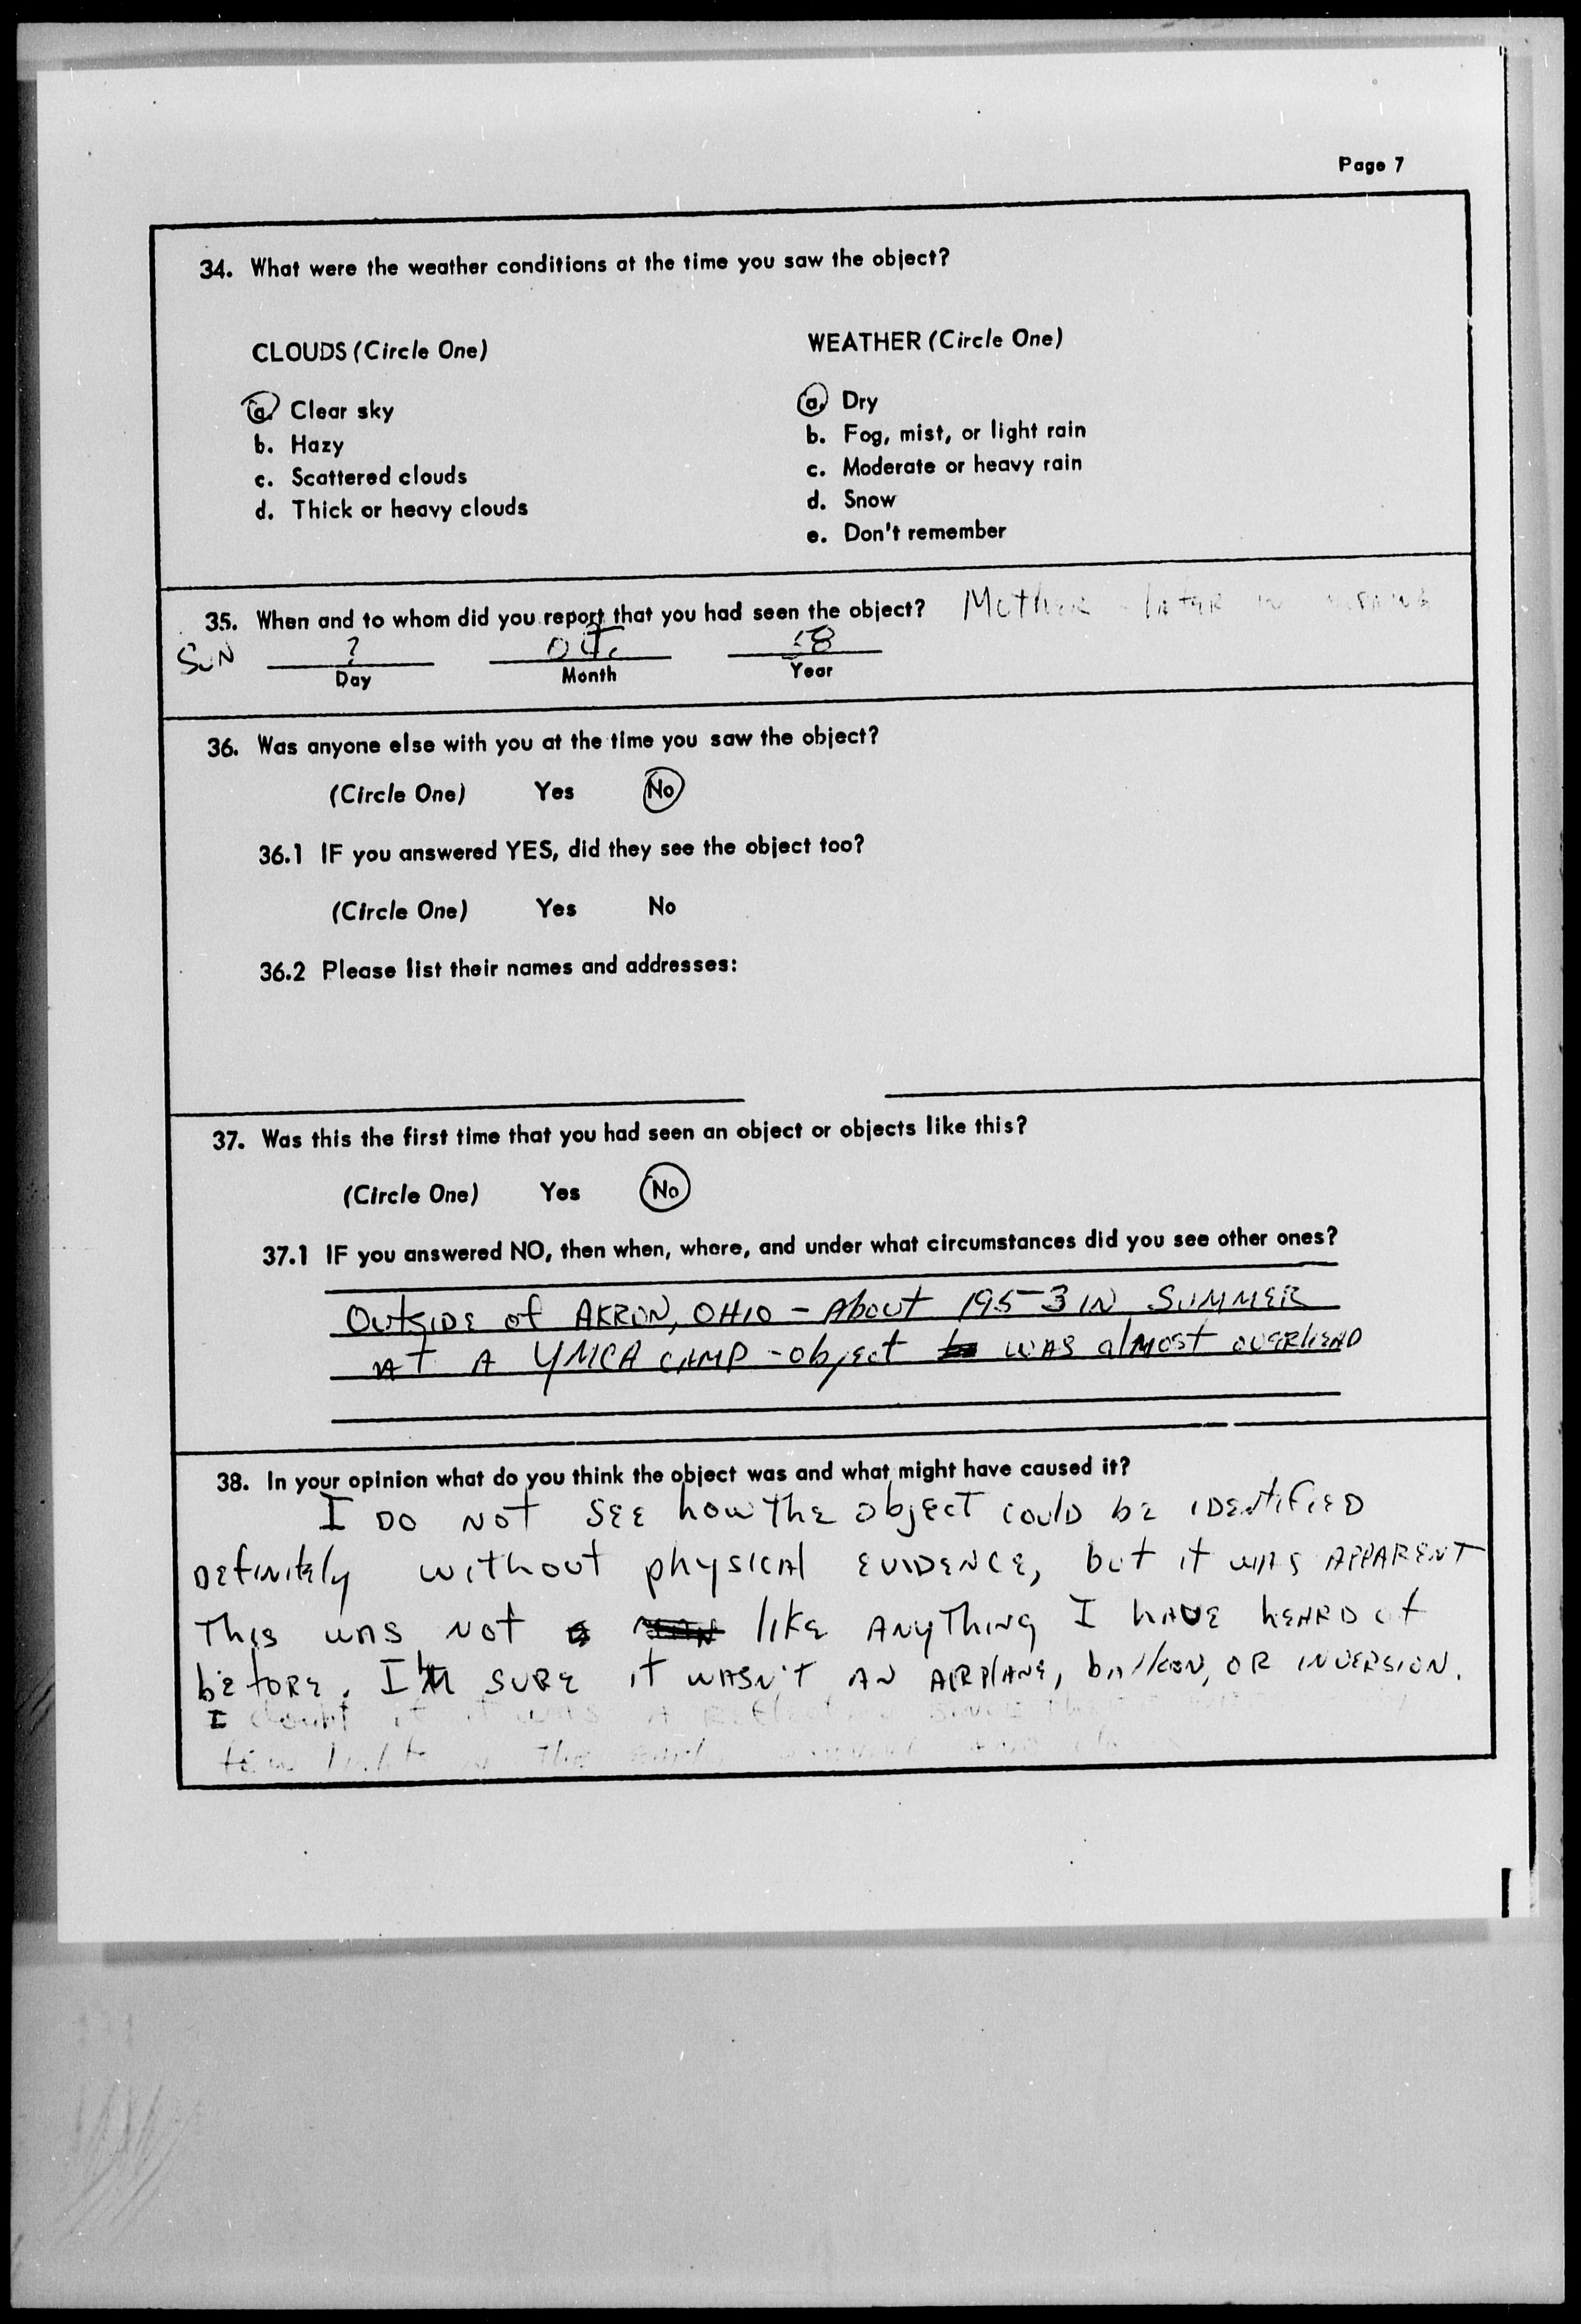 Page 7
34. What were the weather conditions at the time you saw the object?
CLOUDS (Circle One)
a. Clear sky
b. Hazy
c. Scattered clouds
d. Thick or heavy clouds
WEATHER (Circle One)
a. Dry
b. Fog, mist, or light rain
c. Moderate or heavy rain
d. Snow
e. Don't remember
35. When and to whom did you report that you had seen the object? MOTHER - LATER IN
SUN ? Oct. 58
Day Month Year
36. Was anyone else with you at the time you saw the object?
(Circle One) Yes No
36.1 IF you answered YES, did they see the object too?
(Circle One) Yes No
36.2 Please list their names and addresses:
37. Was this the first time that you had seen an object or objects like this?
(Circle One) Yes No
37.1 IF you answered NO, then when, where, and under what circumstances did you see other ones?
OutSIDE of AKRON, OHIO - About 1953 IN SUMMER
At A YMCA CAMP - object WAS almost OVERHEAD
38. In your opinion what do you think the object was and what might have caused it?
I DO NOT SEE how The object could be IDENtIFIED
DEfINItEly without physical EVIDENCE, but it WAS APPARENT
This was Not like ANyThing I HAVE HEARD of
before. I'M SURE it WASN'T AN AIRPlANE, bAlloon, OR INVERSION.
I doubt if it WAS A
few The